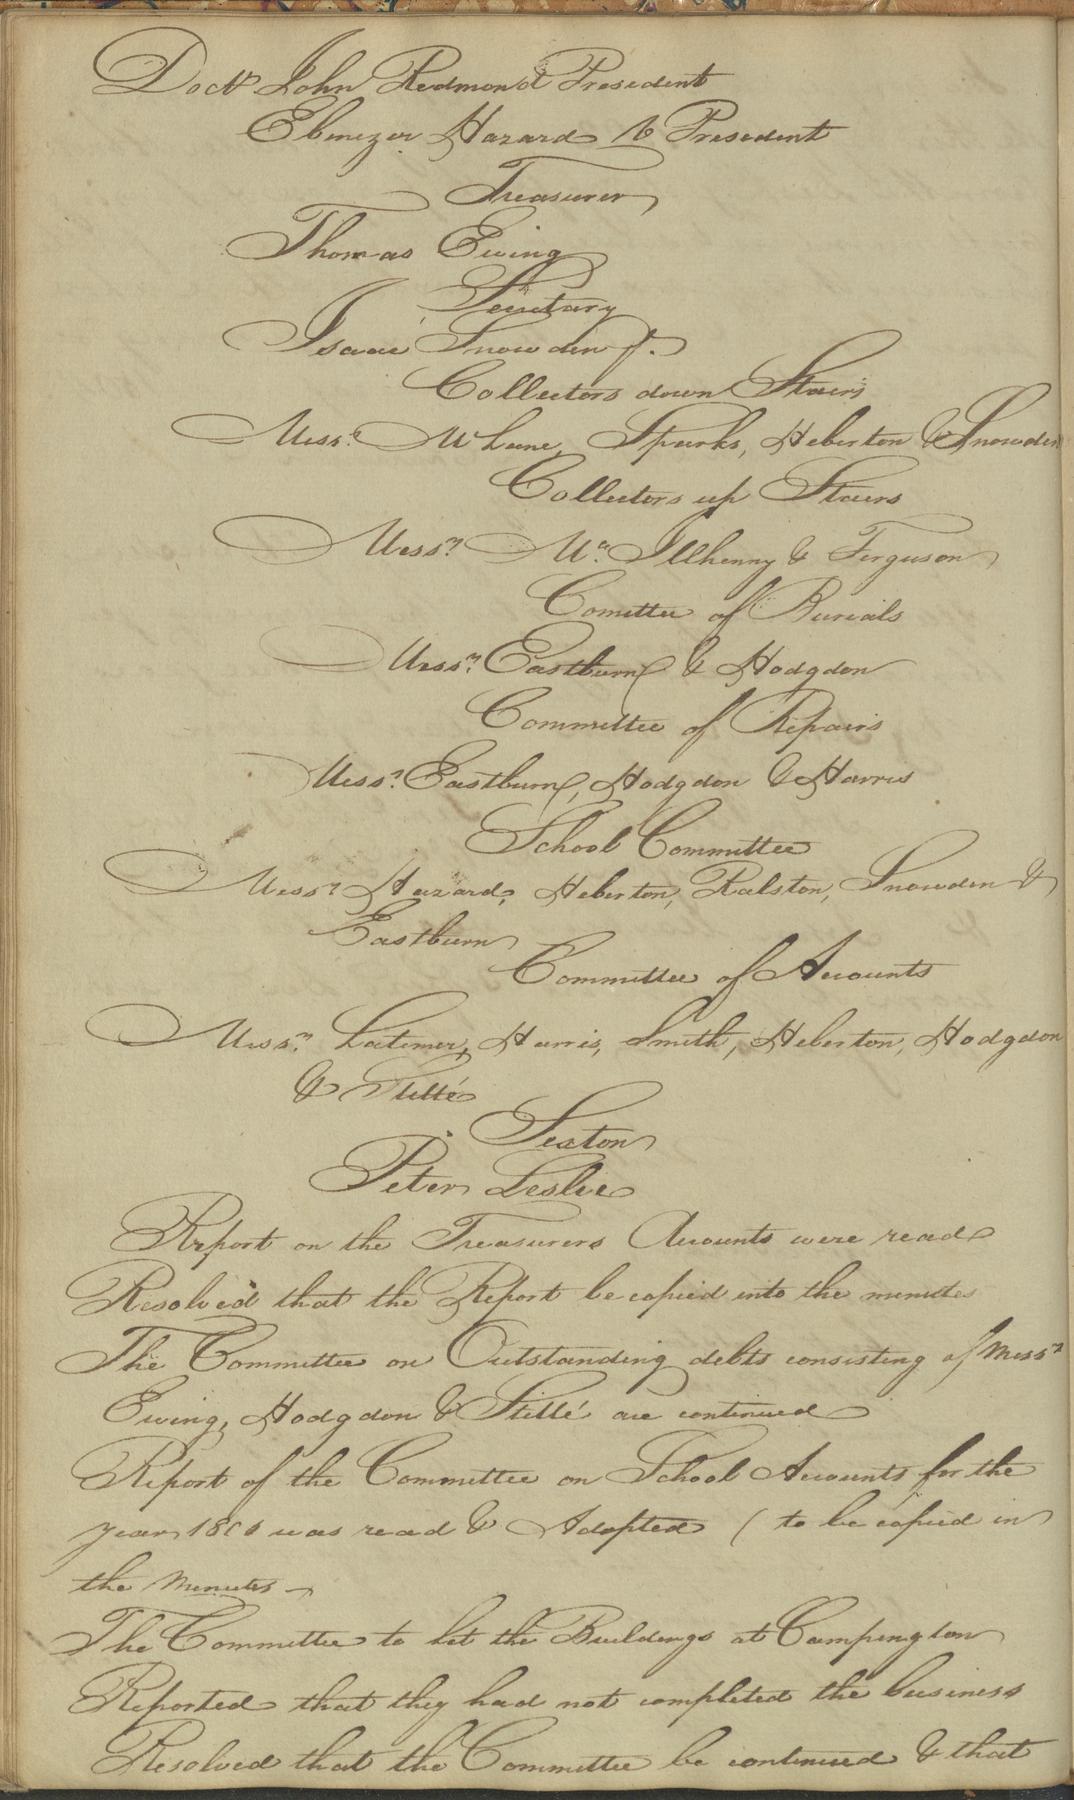 Doctr John Redmond President
Ebenezer Hazard V President
Treasurer
Thomas Ewing
Secretary
Isaac Snowden Jr.
Collectors down Stairs
Messrs McLane, Sparks, Heberton & Snowden
Collectors up Stairs
Messrs Mc Illhenny & Ferguson
Comittee of Burials
Messrs Eastburn & Hodgdon
Committee of Repairs
Messrs Eastburn, Hodgdon & Harris
School Committee
Messrs Hazard, Heberton, Ralston, Snowden &
Eastburn
Committee of Accounts
Messrs Latimer, Harris, Smith, Heberton, Hodgdon
& Stillé
Sexton
Peter Leslie
Report on the Treasurers Accounts were read
Resolved that the Report be copied into the minutes
The Committee on Outstanding debts consisting of Messrs
Ewing, Hodgdon & Stillé are continued
Report of the Committee on School Accounts for the
year was read & Adopted (to be copied in
the Minutes
The Committee to let the Buildings at Campington
Reported that they had not completed the business
Resolved that the Committee be continued & that